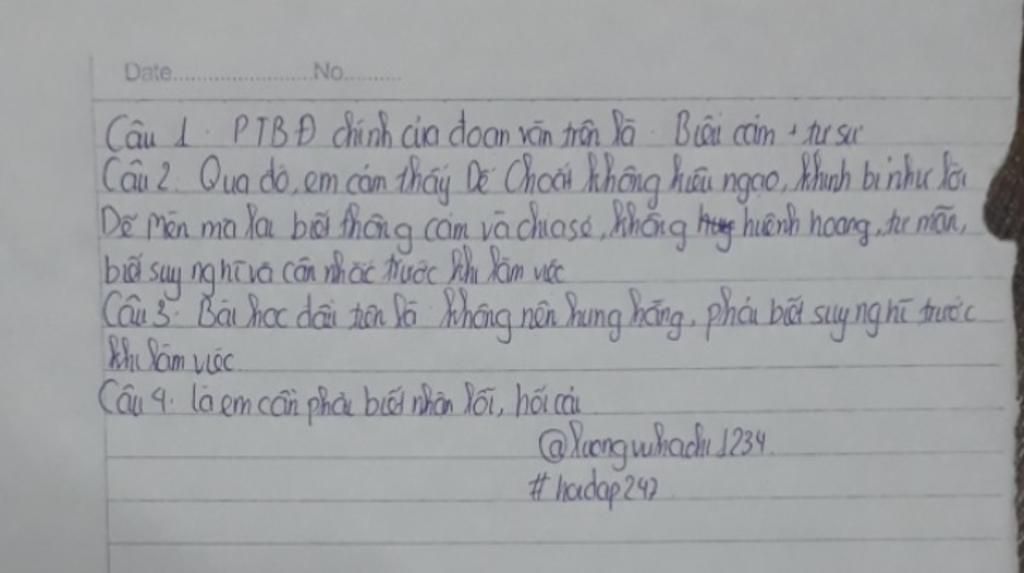 Date.................... No..........
Câu 1. PTBĐ chính của đoạn văn trên là Biểu cảm + tự sự
Câu 2. Qua đó, em cảm thấy Dế Choắt không kiêu ngạo, khinh bỉ như lời
Dế Mèn mà lại biết thông cảm và chia sẻ, không huênh hoang, tự mãn,
biết suy nghĩ và cân nhắc trước khi làm việc
Câu 3. Bài học đầu tiên là không nên hung hăng, phải biết suy nghĩ trước
khi làm việc.
Câu 4. là em cần phải biết nhận lỗi, hối cải
@luongvuhachi1234.